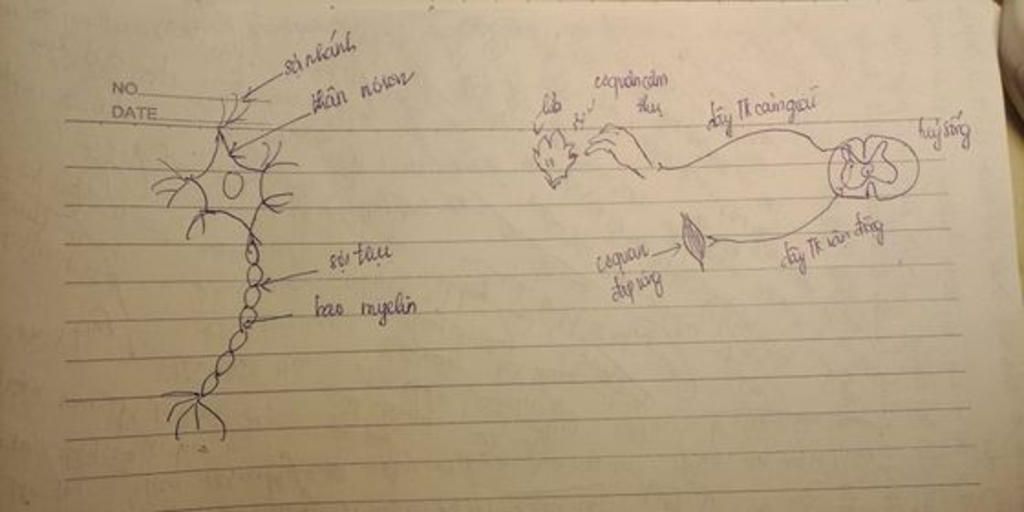 NO
DATE
sợi nhánh
thân nơron
sợi trục
bao myelin
lửa
cơ quan cảm
thụ
dây TK cảm giác
tuỷ sống
dây TK vận động
cơ quan
đáp ứng